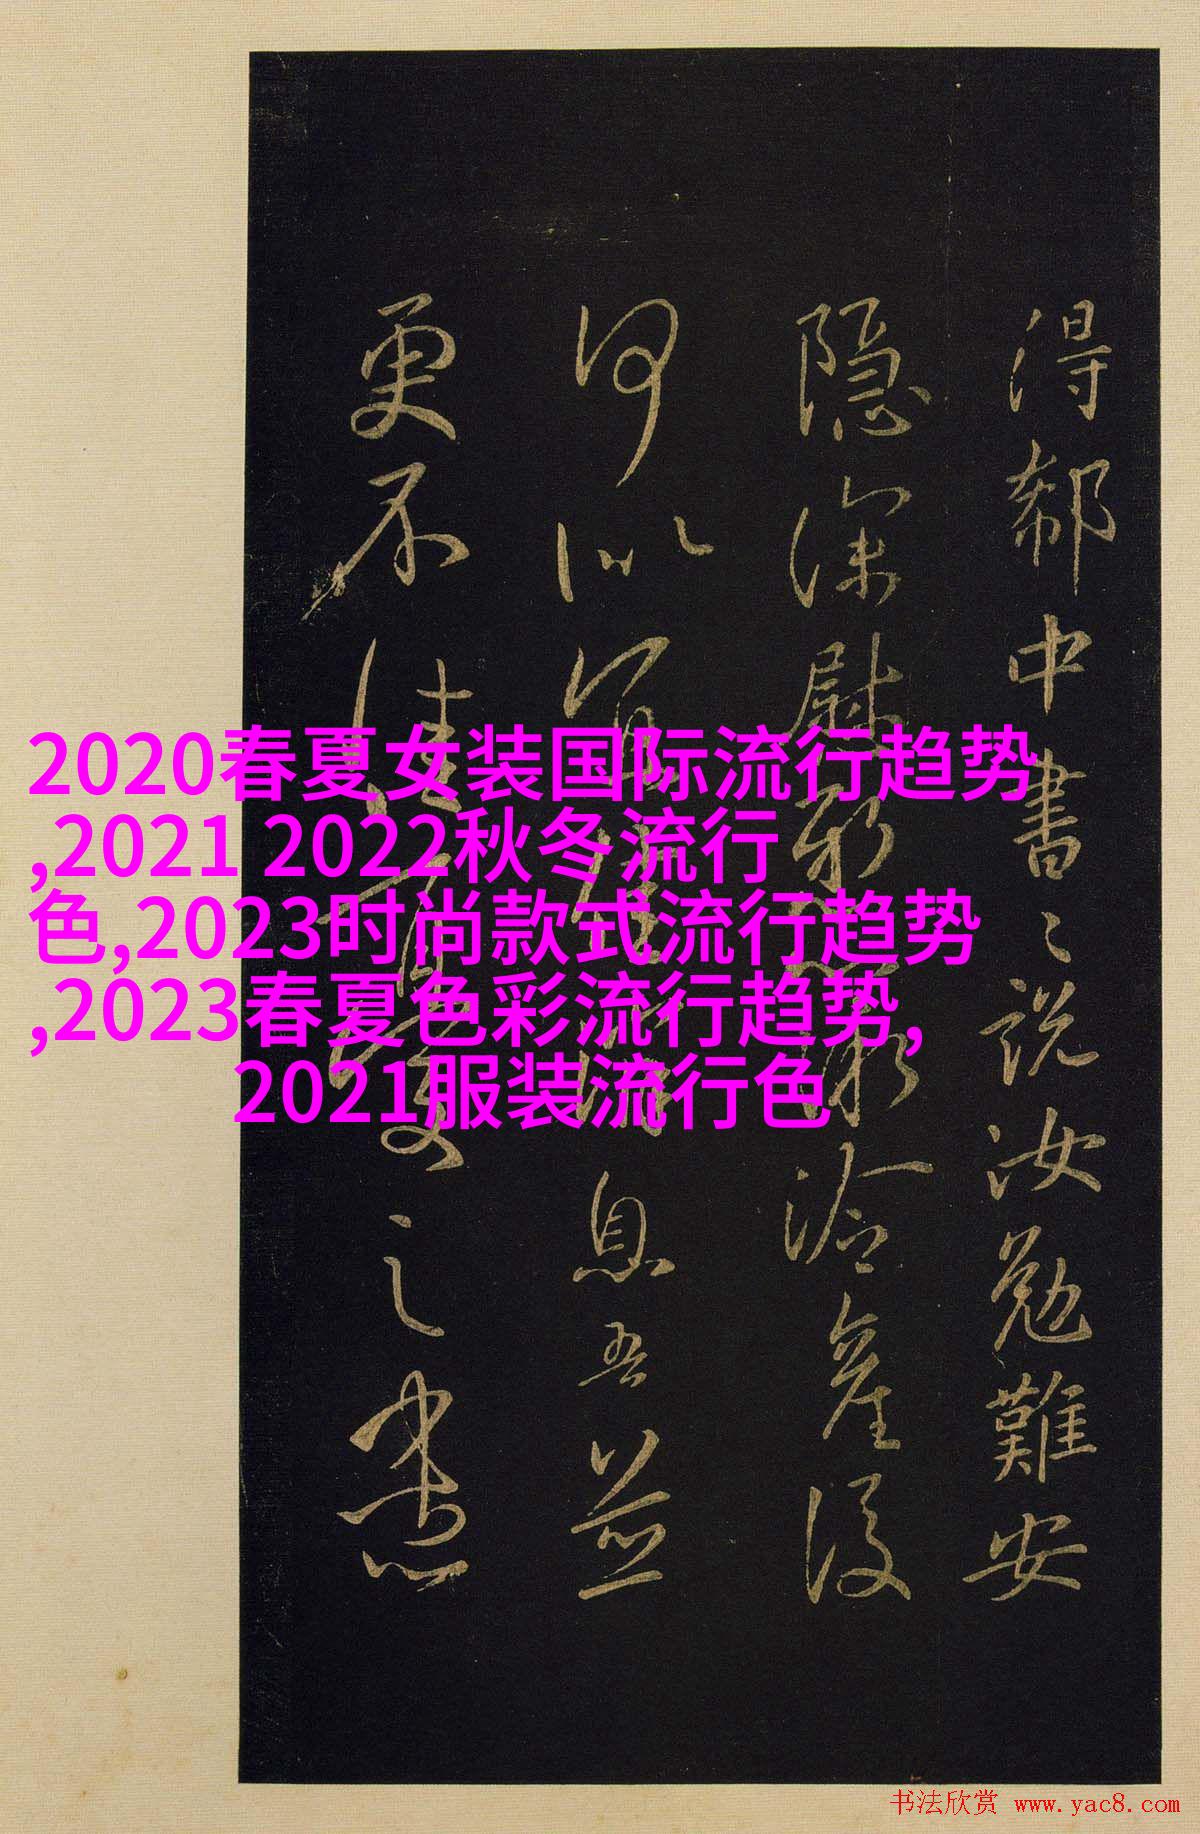 得郗中書々說汝勉難安
隐深慰耿耿冷產後
何以宜佳消息吾並
更不佳憂之
2020春夏女装国际流行趋势
,2021 2022秋冬流行
色,2023时尚款式流行趋势
,2023春夏色彩流行趋势,
2021服装流行色
书法欣赏 www.yac8.com